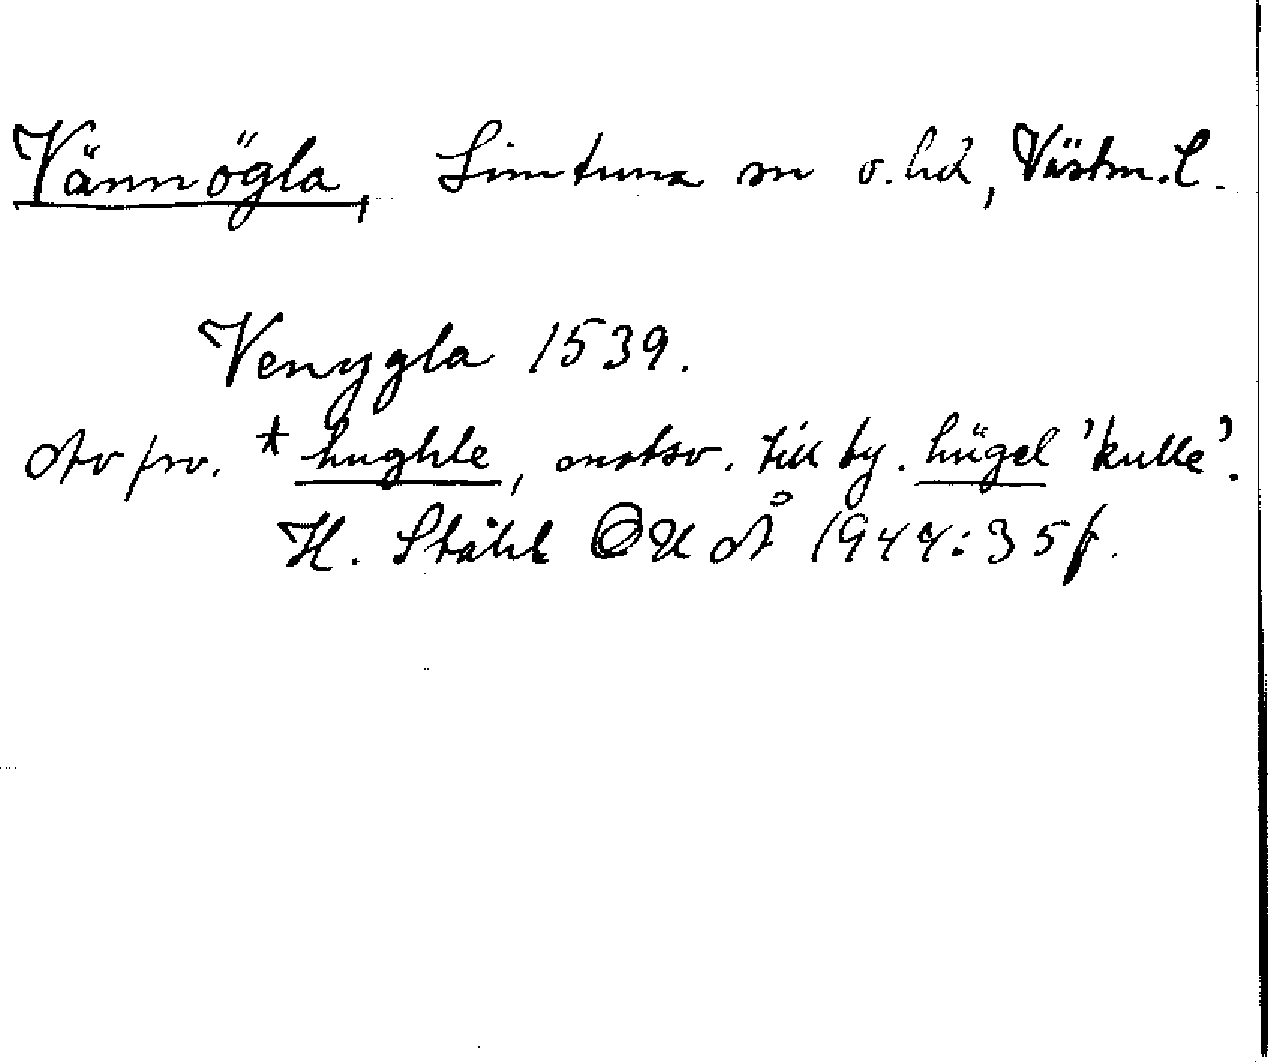 Vännögla, Simtuna sn o. hd, Västm. l.
Venygla 1539.
Av fsv. * hughle, motsv. till ty. hügel 'kulle'.
H. Ståhl OUÅ 1944:35 f.